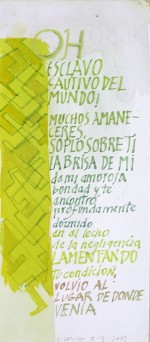 OH
ESCLAVO
CAUTIVO DEL
MUNDO!
MUCHOS AMANE-
CERES,
SOPLÓ SOBRE TI
LA BRISA DE MI
de mi amorosa
bondad y te
encontró
profundamente
dormido
en el lecho
de la negligencia
LAMENTANDO
Tu condición,
VOLVIÓ AL
LUGAR DE DONDE
VENÍA